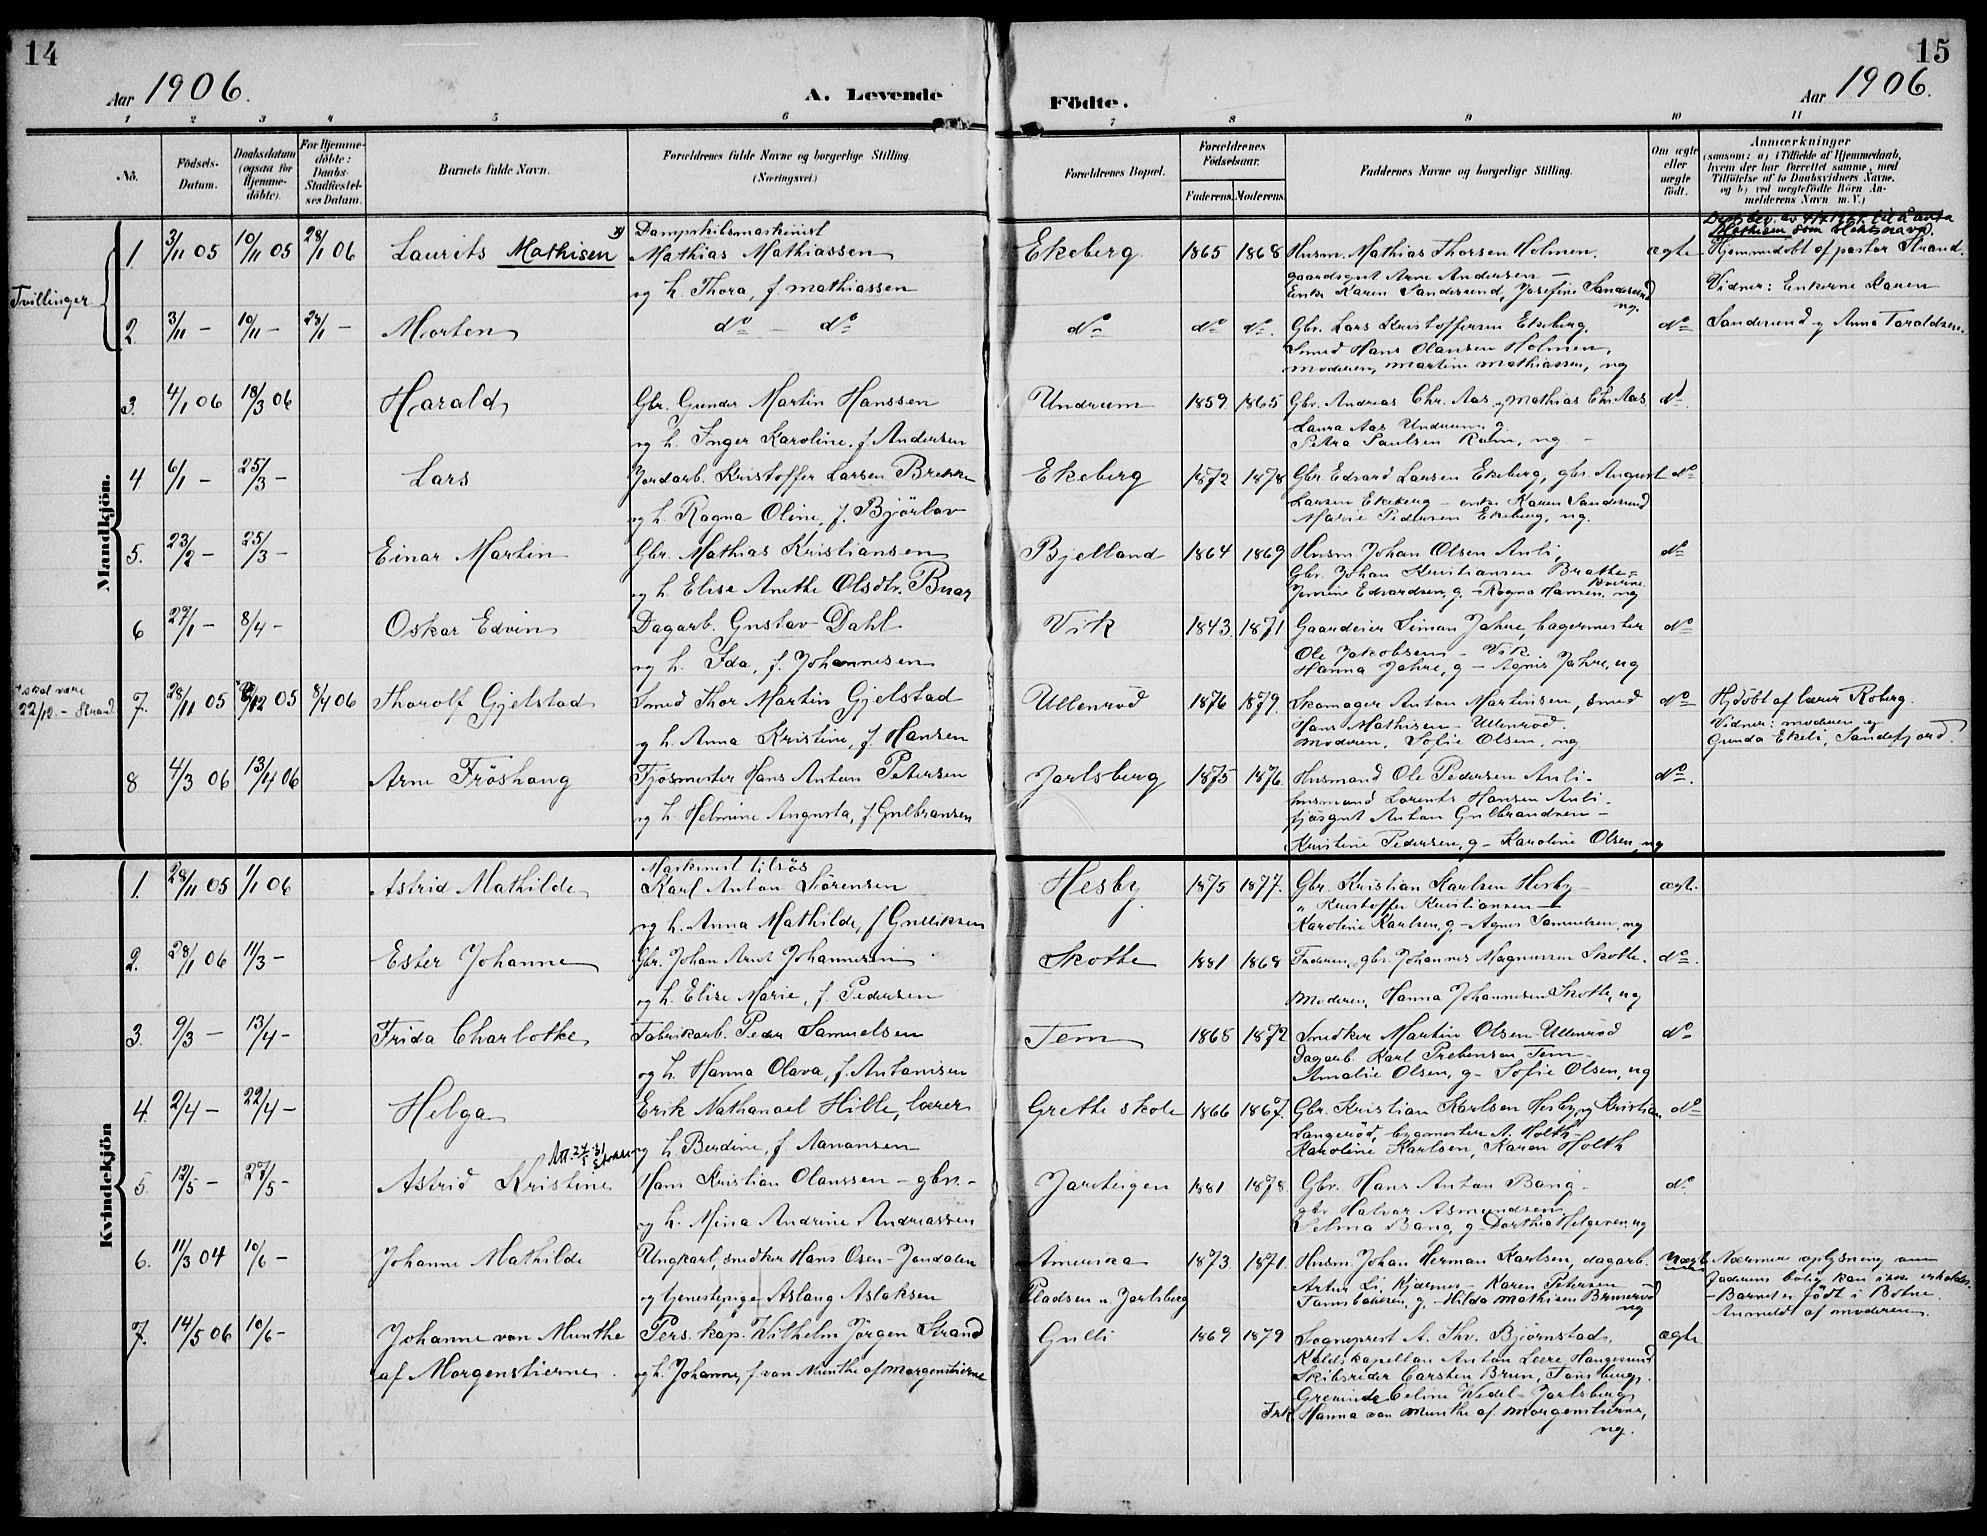 14
Aar 1906.
A. Levende
Födte.
15
Aar 1906.
1 2 3 4 5 6 7 8 9 10 11
No.
Födsels-Datum.
Daabsdatum (ogsaa for Hjemme-döbte).
For Hjemme-döbte: Daabs-Stadfæstel-ses Datum.
Barnets fulde Navn.
Forældrenes fulde Navne og borgerlige Stilling (Næringsvei.)
Forældrenes Bopæl.
Forældrenes Födselsaar.
Faderens. Moderens.
Faddernes Navne og borgerlige Stilling.
Om ægte eller uægte födt.
Anmærkninger
(saasom: a) i Tilfælde af Hjemmedaab, hvem der har forrettet samme, med Tilföielse af to Daabsvidners Navne, og b) ved uægtefödte Börn An-melderens Navn m. V.)
Mandkjön.
Tvillinger
1. 3/11 05 10/11 05 28/1 06 Laurits Mathisen x)
Dampskibsmaskinist
Mathias Mathiassen
og h. Thora, f. Mathiassen
Ekeberg 1865 1868
Husm. Mathias Thorsen Holmen.
gaardsgut Arne Andersen –
Enke Karen Sandesund, Josefine Sandesund
og.
ægte
til å anta
Mathisen som slektsnavn.
Hjemmedöbt af pastor Strand.
Vidner: Enkerne Karen
Sandesund og Anna Taraldsen.
2. 3/11 – 10/11 – 28/1 – Morten
do – do
do do do
Gbr. Lars Kristoffersen Ekeberg.
Smed Hans Olausen Holmen,
moderen, Martine Mathiassen, ug
do
3. 4/1 06 18/3 06 Harald
Gbr. Gunder Martin Hanssen
og h. Inger Karoline, f. Andersen
Undrum 1859 1865
Gbr. Andreas Chr. Aas, Mathias Chr. Aas
Laura Aas Undrum, g.
Petra Paulsen Ramn, ug –
do
4 6/1 – 25/3 – Lars
Jordarb. Kristoffer Larsen Brekke
og h. Ragna Oline, f. Björlov
Ekeberg 1872 1878
Gbr Edvard Larsen Ekeberg, gbr. August
Larsen Ekeberg – enke Karen Sandesund
Marie Pedersen Ekeberg, ug.
do
5. 23/2 – 25/3 – Einar Martin
Gbr. Mathias Kristiansen
og h. Elise Anethe Olsdtr. Buar
Bjelland 1864 1869
Husm. Johan Olsen Auli,
Gbr. Johan Kristiansen Bratte-
Jensine Edvardsen, g – Ragna Hansen, ug
do
6 27/1 – 8/4 – Oskar Edvin
Dagarb. Gustav Dahl
og h. Ida, f. Johannesen
Vik 1843 1871
Gaardeier Simon Jahre, bagermester
Ole Jakobsen – Vik
Hanna Jahre, g – Agnes Jahre, ug
do
+ skal være
22/12. – Strand.
7. 28/11 05 /12 05 8/4 06 Thorolf Gjelstad
Smed Thor Martin Gjelstad
og h. Anna Kristine, f. Hansen
Ullenröd 1876 1879.
Skomager Anton Martinsen, smed
Hans Mathisen – Ullenröd.
moderen, Sofie Olsen, ug
do
Hjdöbt af lærer Roberg.
Vidner: moderen og
Gunda Ekeli, Sandefjord.
8 4/3 06 13/4 06 Arne Fröshaug
Fjösmester Hans Anton Petersen
og h. Helmine Augusta, f Gulbransen
Jarlsberg 1875 1876.
Husmand Ole Pedersen Auli –
husmand Lorents Hansen Auli –
fjösgut Anton Gulbrandsen –
Kristine Pedersen, g – Karoline Olsen, ug
do.
Kvindekjön
1. 28/11 05 1/1 06 Astrid Mathilde
Maskinist tilsös
Karl Anton Sörensen
og h. Anna Mathilde, f Gulliksen
Hesby 1875 1877.
Gbr. Kristian Karlsen Hesby –
" Kristoffer Kristiansen –
Karoline Karlsen, g – Agnes Samuelsen, ug
ægt.
2. 28/1 06 11/3 – Ester Johanne
Gbr. Johan Arnt Johannesen
og h. Elise Marie, f. Pedersen
Skotte 1881 1868
Faderen, gbr. Johannes Magnussen Skotte.
Moderen, Hanna Johannesen Skotte, ug
do.
3. 9/3 – 13/4 – Frida Charlotte
Fabrikarb. Peder Samuelsen
og h. Hanna Olava, f. Antonisen
Tem 1865 1872
Snedker Martin Olsen Ullenröd
Dagarb. Karl Prebensen Tem –
Amalie Olsen, g – Sofie Olsen, ug
do
4. 2/4 – 22/4 – Helga
Erik Nathanael Hille, lærer
og h. Berdine, f. Aanansen
Grette skole 1866 1867.
Gbr. Kristian Karlsen Hesby, og Kristian
Langeröd, bygmester A. Holth
Karoline Karlsen, Karen Holth
do
5. 12/5 – 27/5 – Astrid Kristine
Hans Kristian Olaussen – gbr. –
og h. Mina Andrine Andreassen
Jarteigen 1881 1878
Gbr. Hans Anton Bang –
gbr. Halvor Asmundsen
Selma Bang, g Dorthea Helgesen, ug
do
6. 11/3 04 10/6 – Johanne Mathilde
Ungkarl, snedker Hans Osen – Jondalen
og tjenestepige Aslaug Aslaksen
Amerika
Pladsen u. Jarlsberg
1873 1871.
Husm. Johan Herman Karlsen, dagarb.
Artur Li, Kjærnes – Karen Petersen
g – Hilda Mathisen Brunseröd
ug
uægte
Nærmere oplysning om
faderens bolig kan ikke erholdes.
– Barnet er födt i Botne.
Anmeldt af moderen.
7. 14/5 06 10/6 – Johanne von Munthe
af Morgenstierne.
Pers. kap. Wilhelm Jörgen Strand
og h. Johanne, f. von Munthe af Morgenstierne
Gulli 1869 1879
Sogneprest A. Thv. Björnstad,
Kaldskapellan Anton Leere, Haugesund
Skibsreder Carsten Brun, Tönsberg.
Grevinde Celine Wedel-Jarlsberg
Frk. Hanna von Munthe af Morgenstierne,
ug.
ægte